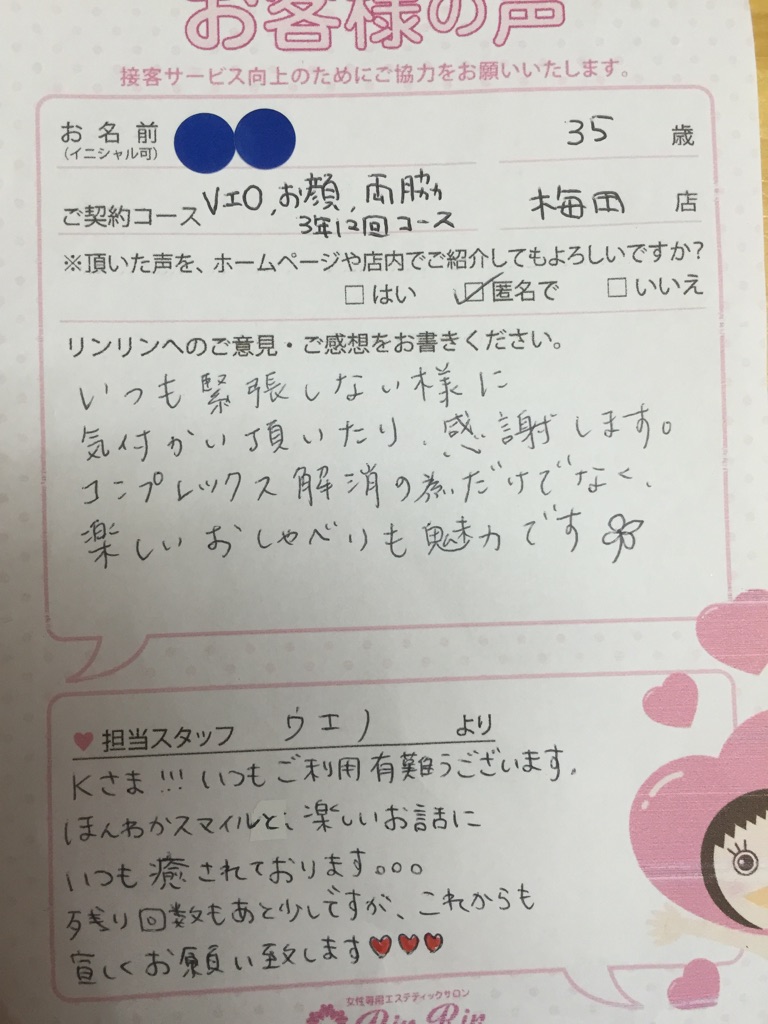 お客様の声
接客サービス向上のためにご協力をお願いいたします。
お名前
(イニシャル可)
35 歳
ご契約コース VIO、お顔、両脇
3年12回コース
梅田 店
※頂いた声を、ホームページや店内でご紹介してもよろしいですか?
□はい ☑匿名で □いいえ
リンリンへのご意見・ご感想をお書きください。
いつも緊張しない様に
気付かい頂いたり、感謝します。
コンプレックス解消の為だけでなく、
楽しいおしゃべりも魅力です
♥担当スタッフ ウエノ より
Kさま!!! いつもご利用有難うございます。
ほんわかスマイルと、楽しいお話に
いつも癒されております。。。
残り回数もあと少しですが、これからも
宜しくお願い致します♥♥♥
女性専用エステティックサロン
Rin Rin